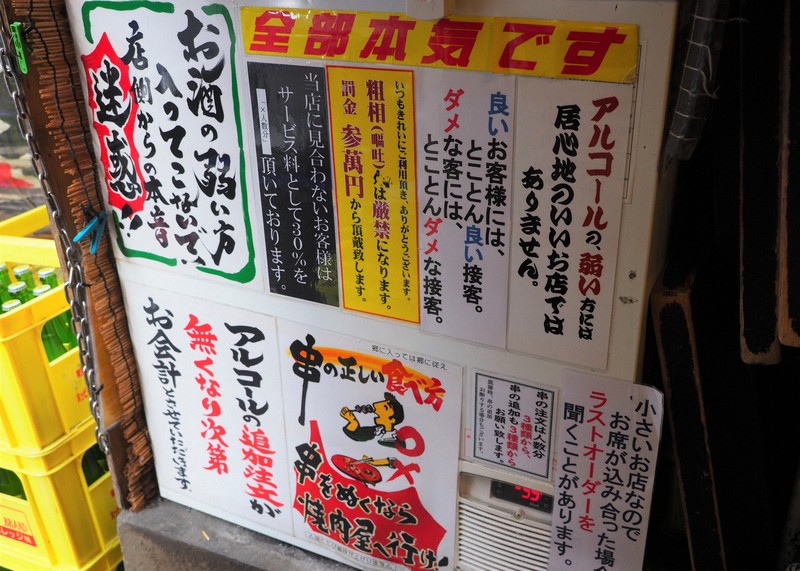 全部本気です
お酒の弱い方
入ってこないで
店側からの本音
迷惑!!
当店に見合わないお客様は
サービス料として30%を
(×人数分)頂いております。
いつもきれいにご利用頂き、ありがとうございます。
粗相(嘔吐)は厳禁になります。
罰金 参萬円から頂戴致します。
良いお客様には、
とことん良い接客。
ダメな客には、
とことんダメな接客。
アルコールの、弱い方には
居心地のいいお店では
ありません。
アルコールの追加注文が
無くなり次第
お会計とさせていただきます。
郷に入っては郷に従え
串の正しい食べ方
串をぬくなら
焼肉屋へ行け!
串の注文は人数分
3種類から
串の追加も3種類から
お願い致します。
小さいお店なので
お席が込み合った場合
ラストオーダーを
聞くことがあります。
BRAND